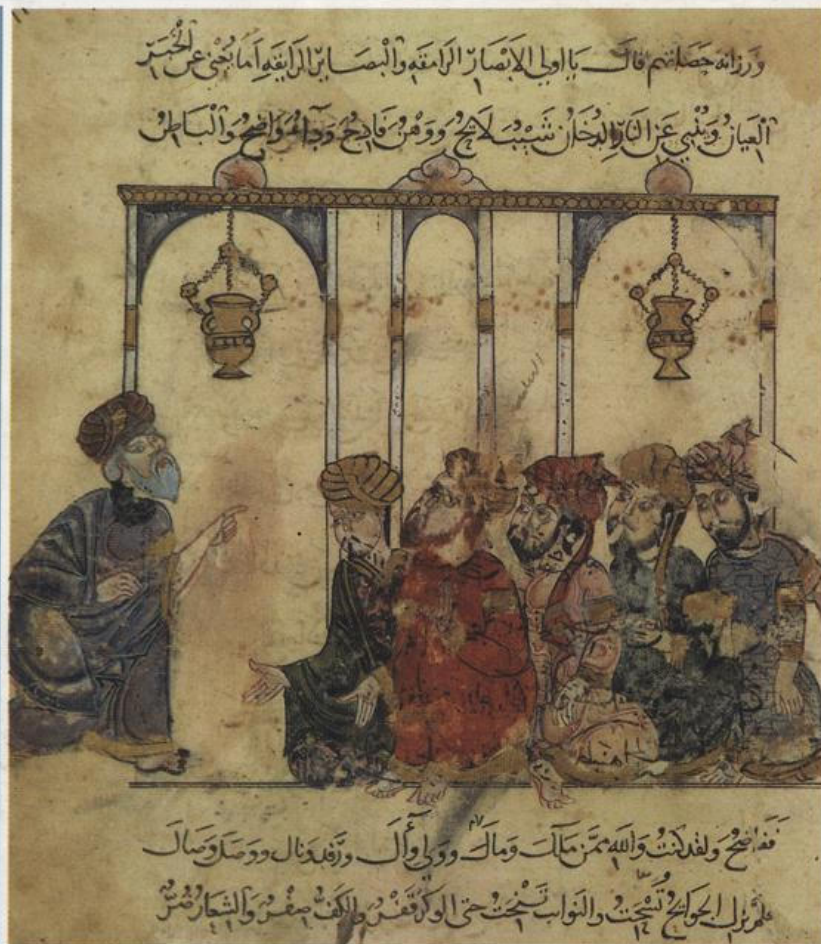 ورزانه حصاتهم قال يا اولي الابصار الرامقه والبصاير الرايقه اما يغني عن الخبر
العيان وينبي عن النار الدخان شيب لايح ووهن فادح وداء واضح والباطن
ففاضح ولقد كنت والله ممن ملك ومال وولي وآل ورفد ونال ووصل وصال
فلم تزل الجوايح تسحت والنوايب تنحت حتى الوكر قفر والكف صفر والشعار ضر